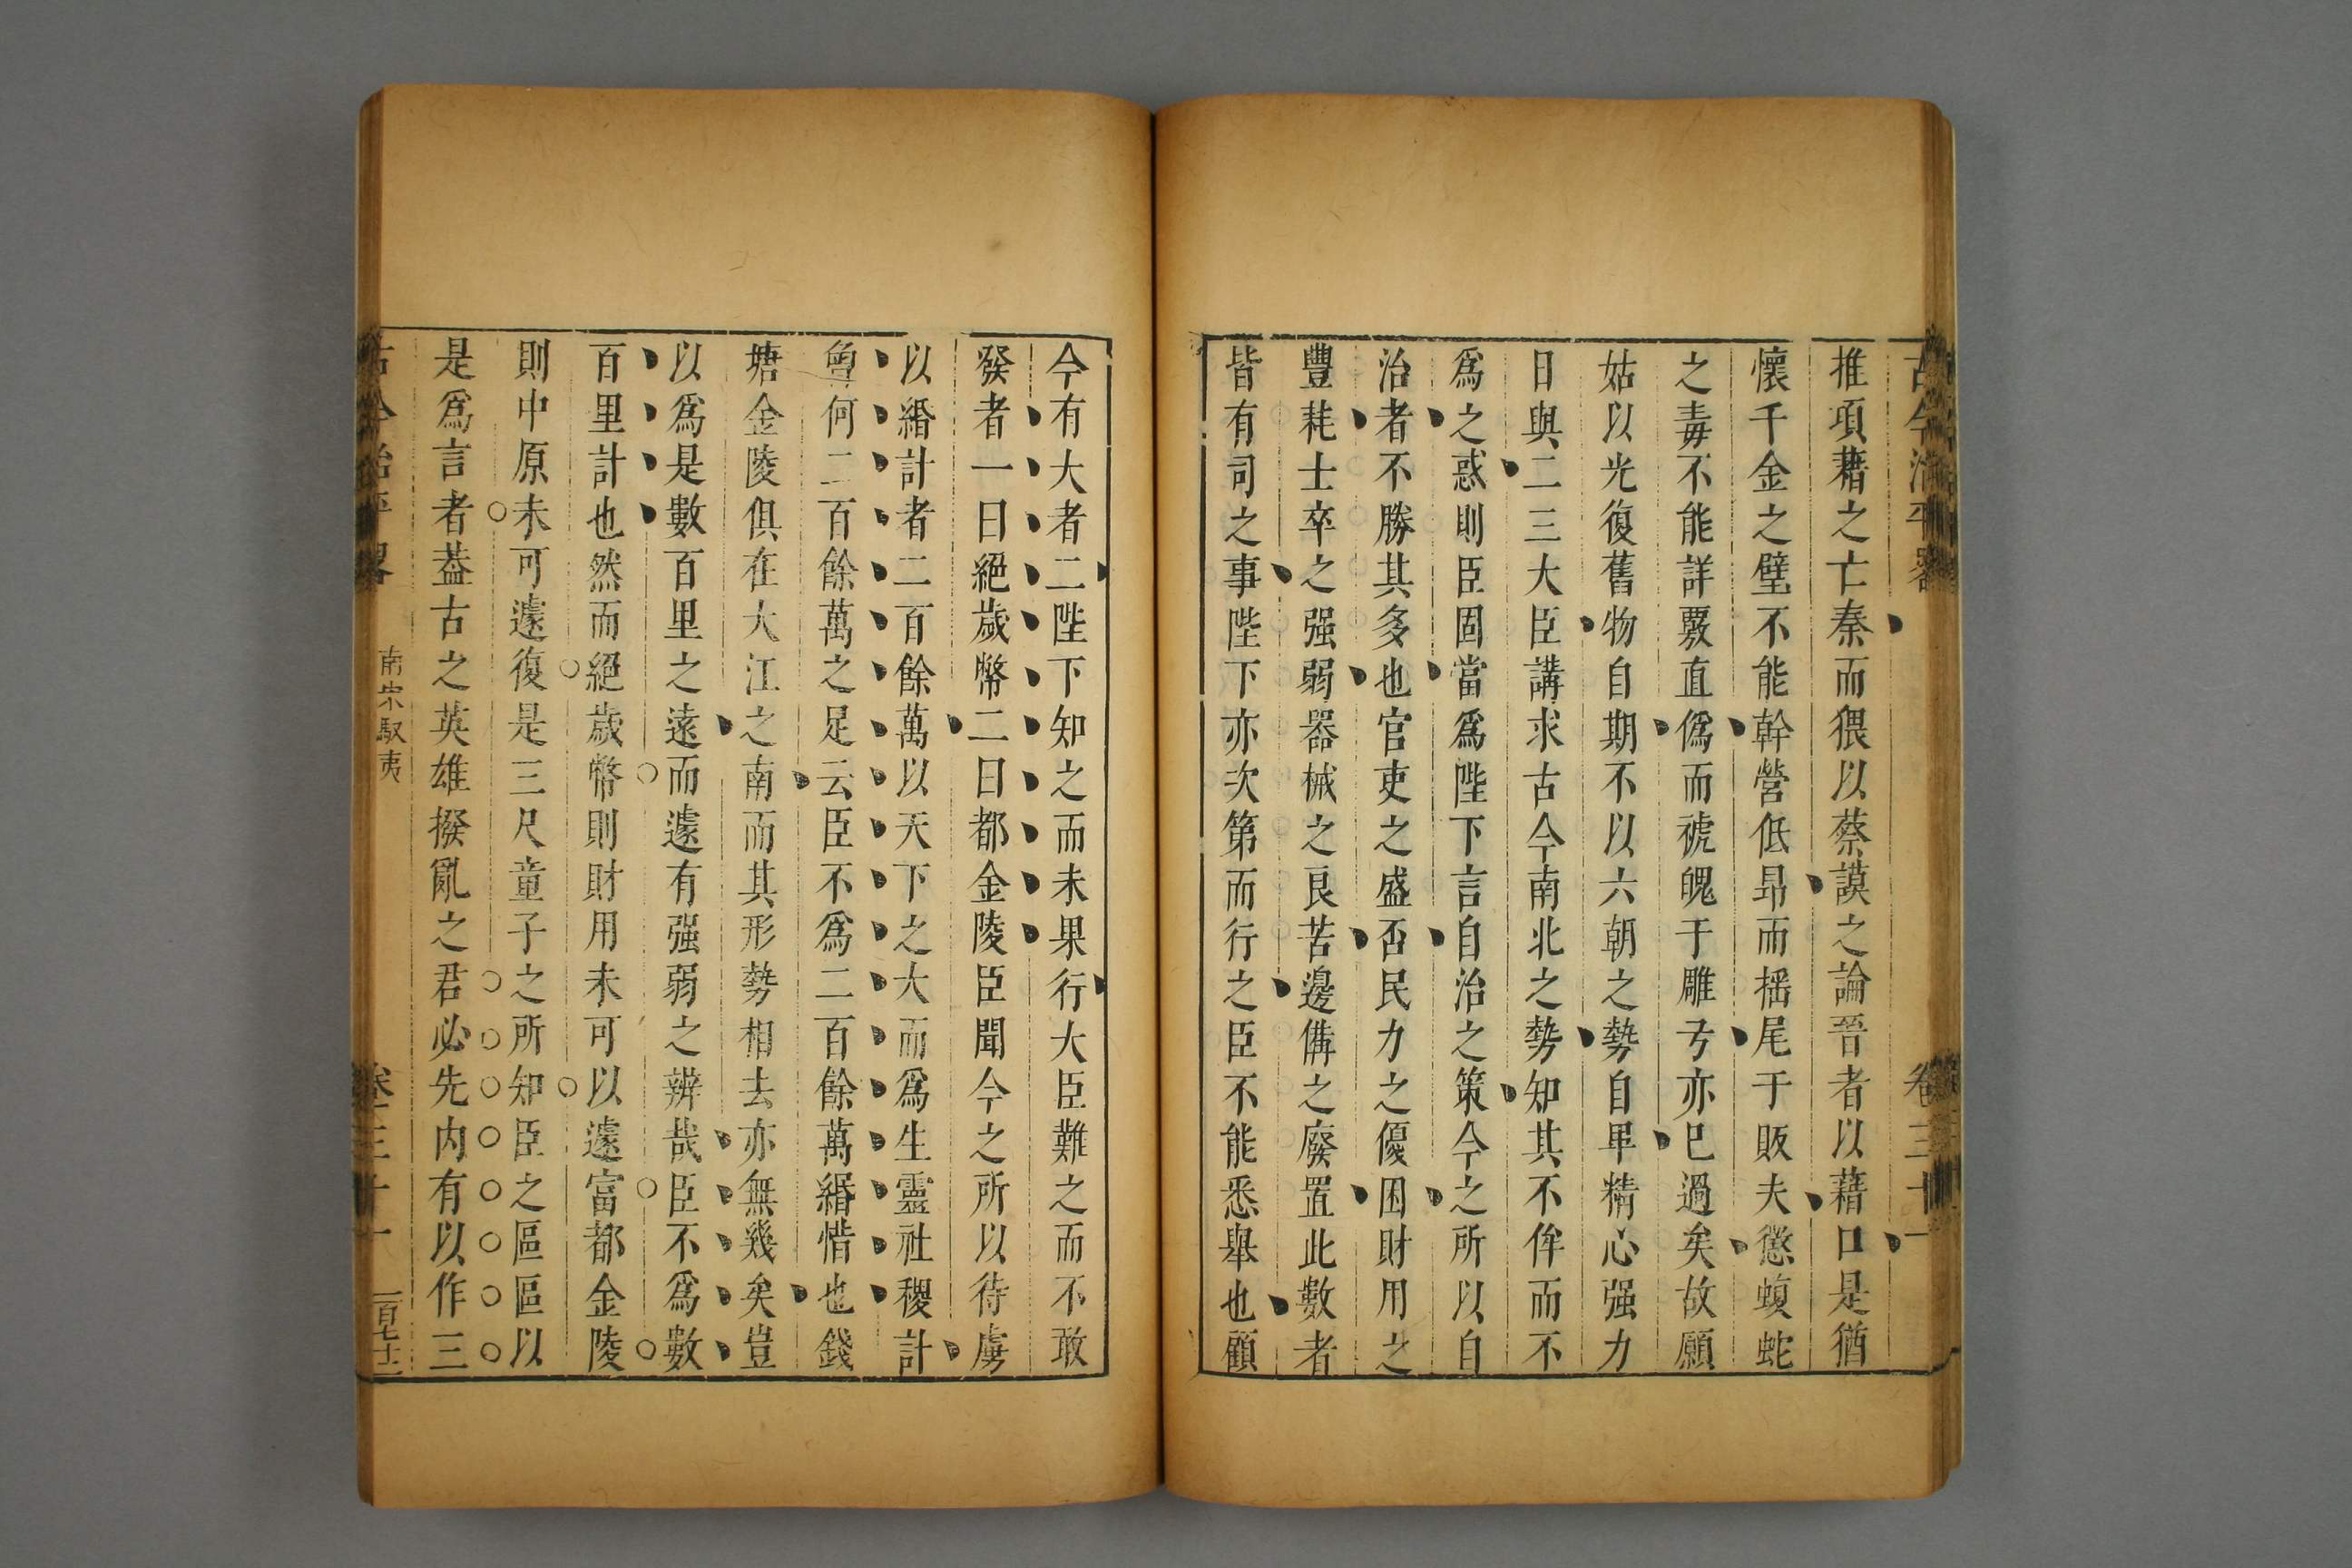 古今治平畧
卷三十一
推項藉之亡秦而猥以蔡謨之論晉者以藉口是猶
懷千金之璧不能幹營低昻而揺尾于販夫懲蝮蛇
之毒不能詳覈直僞而褫魄于雕弓亦已過矣故願
姑以光復舊物自期不以六朝之勢自卑精心强力
日與二三大臣講求古今南北之勢知其不侔而不
爲之惑則臣固當爲陛下言自治之策今之所以自
治者不勝其多也官吏之盛否民力之優困財用之
豐耗士卒之强弱器械之良苦邊備之廢置此數者
皆有司之事陛下亦次第而行之臣不能悉舉也顧
今有大者二陛下知之而未果行大臣難之而不敢
發者一曰絕歲幣二曰都金陵臣聞今之所以待虜
以緡計者二百餘萬以天下之大而爲生靈社稷計
曾何二百餘萬之足云臣不爲二百餘萬緡惜也錢
塘金陵俱在大江之南而其形勢相去亦無幾矣豈
以爲是數百里之遠而遽有强弱之辨哉臣不爲數
百里計也然而絕歲幣則財用未可以遽富都金陵
則中原未可遽復是三尺童子之所知臣之區區以
是爲言者葢古之英雄撥亂之君必先内有以作三
古今治平畧
南宋馭夷
卷三十一
一百七十二